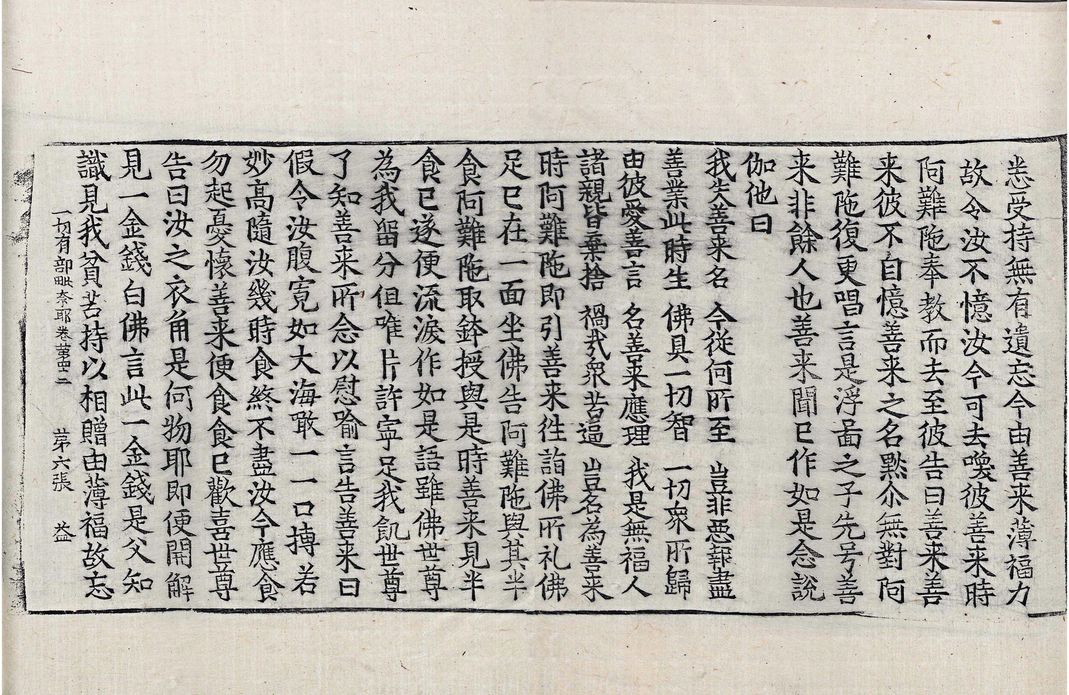 悉受持無有遺忘今由善来薄福力
故令汝不憶汝今可去喚彼善来時
阿難陁奉教而去至彼告曰善来善
来彼不自憶善来之名黙尒無對阿
難陁復更唱言是浮啚之子先号善
来非餘人也善来聞已作如是念說
伽他曰
我失善来名 今從何所至 豈非惡報盡
善業此時生 佛具一切智 一切衆所歸
由彼愛善言 名善来應理 我是無福人
諸親皆棄捨 禍我衆苦逼 豈名為善来
時阿難陁即引善来往詣佛所礼佛
足已在一面坐佛告阿難陁與其半
食阿難陁取鉢授與是時善来見半
食已遂便流淚作如是語雖佛世尊
為我留分但唯片許寧足我飢世尊
了知善来所念以慰喻言告善来曰
假令汝腹寬如大海敢一一口摶若
妙高隨汝幾時食終不盡汝今應食
勿起憂懷善来便食食已歡喜世尊
告曰汝之衣角是何物耶即便開解
見一金錢白佛言此一金錢是父知
識見我貧苦持以相贈由薄福故忘
一切有部毗奈耶卷第四十二 第六張 益